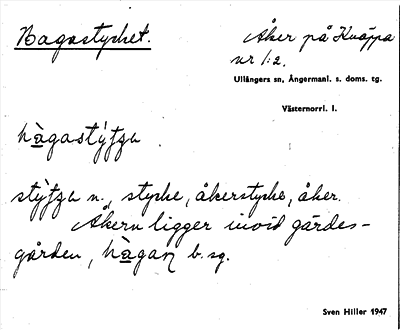 Hagastycket.
Åker på Knäppa
nr 1:2.
Ullångers sn, Ångermanl. s. doms. tg.
Västernorrl. l.
hàgastýʃʒa
stýʃʒa n., stycke, åkerstycke, åker.
Åkern ligger invid gärdes-
gården, hàgan b. sg.
Sven Hiller 1947